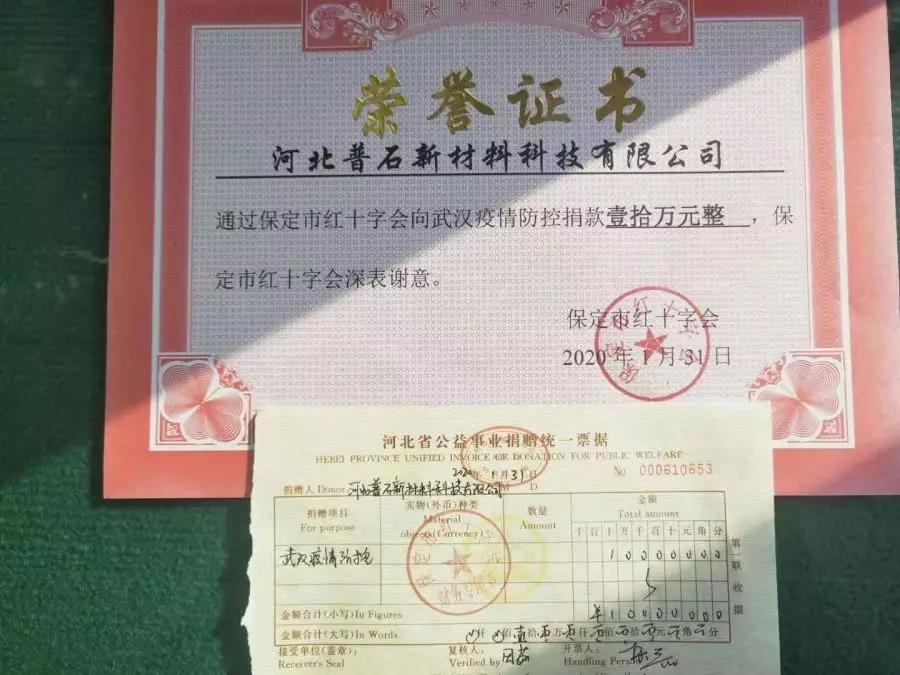 荣誉证书
河北普石新材料科技有限公司
通过保定市红十字会向武汉疫情防控捐款壹拾万元整，保
定市红十字会深表谢意。
保定市红十字会
2020年1月31日
河北省公益事业捐赠统一票据
HEBEI PROVINCE UNIFIED INVOICE OR DONATION FOR PUBLIC WELFARE
2020年1月31日
No 000610653
M D
捐赠人Donor:河北普石新材料科技有限公司
捐赠项目
For purpose
实物(外币)种类
Material
objects(Currency)
数量
Amount
金额
Total amount
千百十万千百十元角分
武汉疫情防控
10000000
第一联收据
金额合计(小写)In Figures
¥10000000
金额合计(大写)In Words
仟佰壹拾零万零仟零佰零拾零元零角零分
接受单位(盖章):
Receiver's Seal
复核人:
Verified by
开票人:
Handling Person